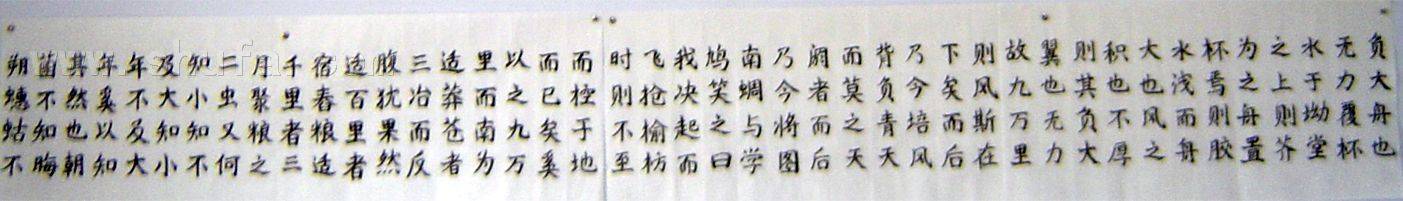 负大舟也
无力覆杯
水于坳堂
之上则芥
为之舟置
杯焉则胶
水浅而舟
大也风之
积也不厚
则其负大
翼也无力
故九万里
则风斯在
下矣而后
乃今培风
背负青天
而莫之天
阏者而后
乃今将图
南蜩与学
鸠笑之曰
我决起而
飞抢榆枋
时则不至
而控于地
而已矣奚
以之九万
里而南为
适莽苍者
三冶而反
腹犹果然
适百里者
宿舂粮适
千里者三
月聚粮之
二虫又何
知小知不
及大知小
年不及大
年奚以知
其然也朝
菌不知晦
朔蟪蛄不